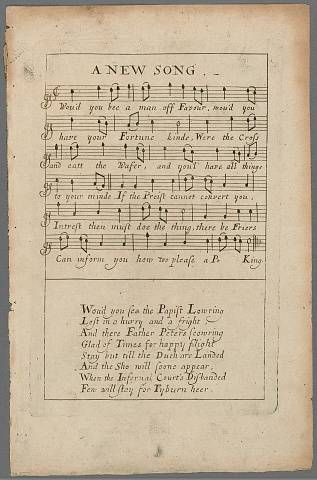 A NEW SONG.
Woud you bee a man off Favour, woud you
have your Fortune kinde, Were the Cross
and eatt the Wafer, and you'l have all things
to your minde, If the Preist cannot convert you,
Intrest then must doe the thing, there be Friers
Can inform you how too please a P. King.
Woud you see the Papist Lowring
Lost in a hurry and a fright
And there Father Peters scowring
Glad of Times for happy flight
Stay but till the Dutch are Landed
And the Sho will soone appear,
When the Infernal Court's Disbanded
Few will stay for Tyburn heer.